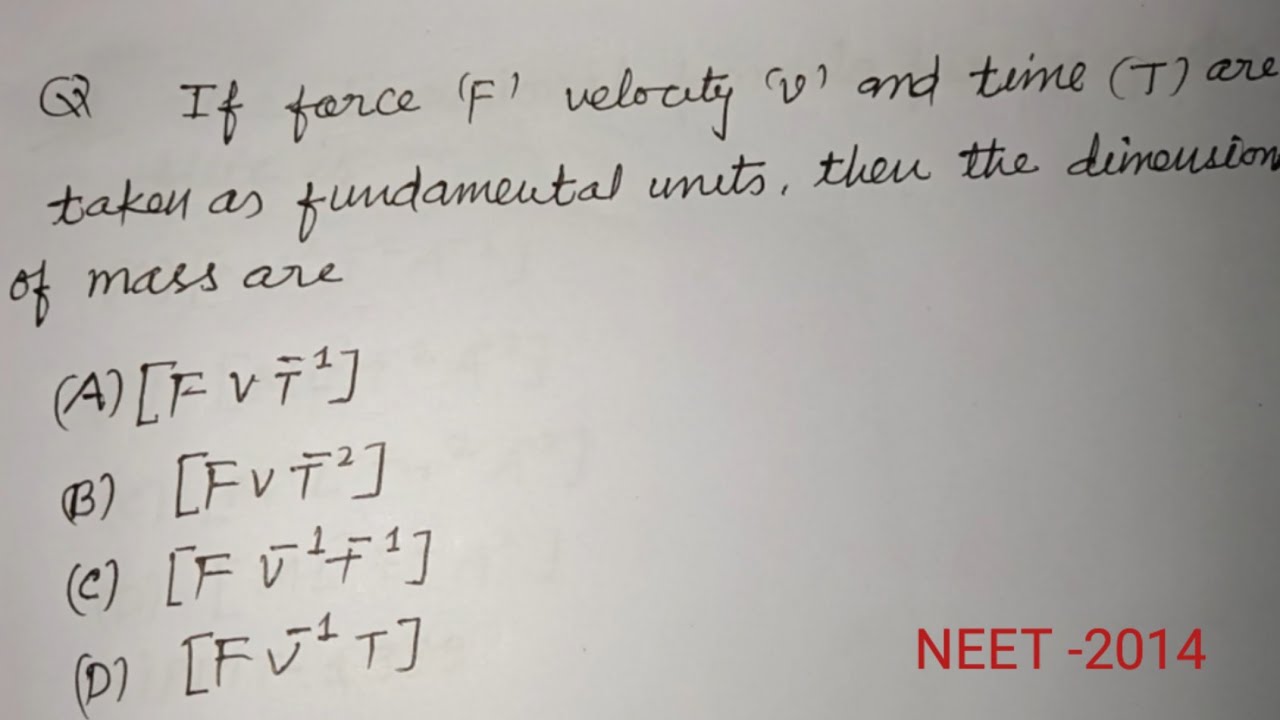 Q If force (F) velocity (v) and time (T) are
taken as fundamental units, then the dimension
of mass are
(A) [F V T⁻¹]
(B) [F V T⁻²]
(C) [F V⁻¹ T⁻¹]
(D) [F V⁻¹ T]
NEET -2014